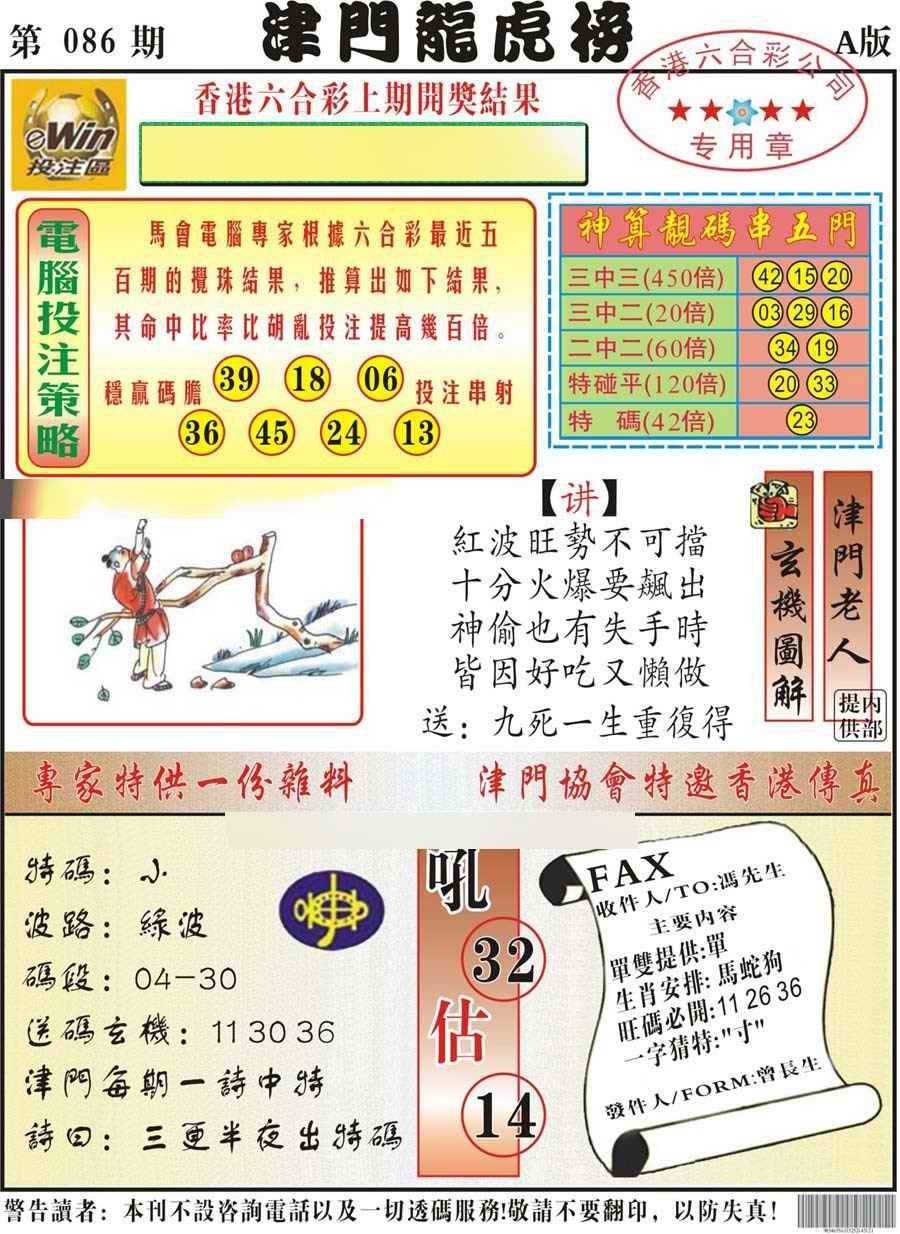 第 086 期
津門龍虎榜
A版
香港六合彩公司
专用章
eWin
投注區
香港六合彩上期開獎結果
電腦投注策略
馬會電腦專家根據六合彩最近五
百期的攪珠結果，推算出如下結果，
其命中比率比胡亂投注提高幾百倍。
穩贏碼膽 39 18 06 投注串射
36 45 24 13
神算靚碼串五門
三中三(450倍) 42 15 20
三中二(20倍) 03 29 16
二中二(60倍) 34 19
特碰平(120倍) 20 33
特 碼(42倍) 23
【讲】
紅波旺勢不可擋
十分火爆要飆出
神偷也有失手時
皆因好吃又懶做
送：九死一生重復得
玄機圖解
津門老人
内部提供
專家特供一份雜料
津門協會特邀香港傳真
特碼：小
波路：綠波
碼段：04-30
送碼玄機：11 30 36
津門每期一詩中特
詩曰：三更半夜出特碼
吼
32
估
14
FAX
收件人/TO:馮先生
主要内容
單雙提供:單
生肖安排:馬蛇狗
旺碼必開:11 26 36
一字猜特:"寸"
發件人/FORM:曾長生
警告讀者：本刊不設咨詢電話以及一切透碼服務!敬請不要翻印，以防失真!